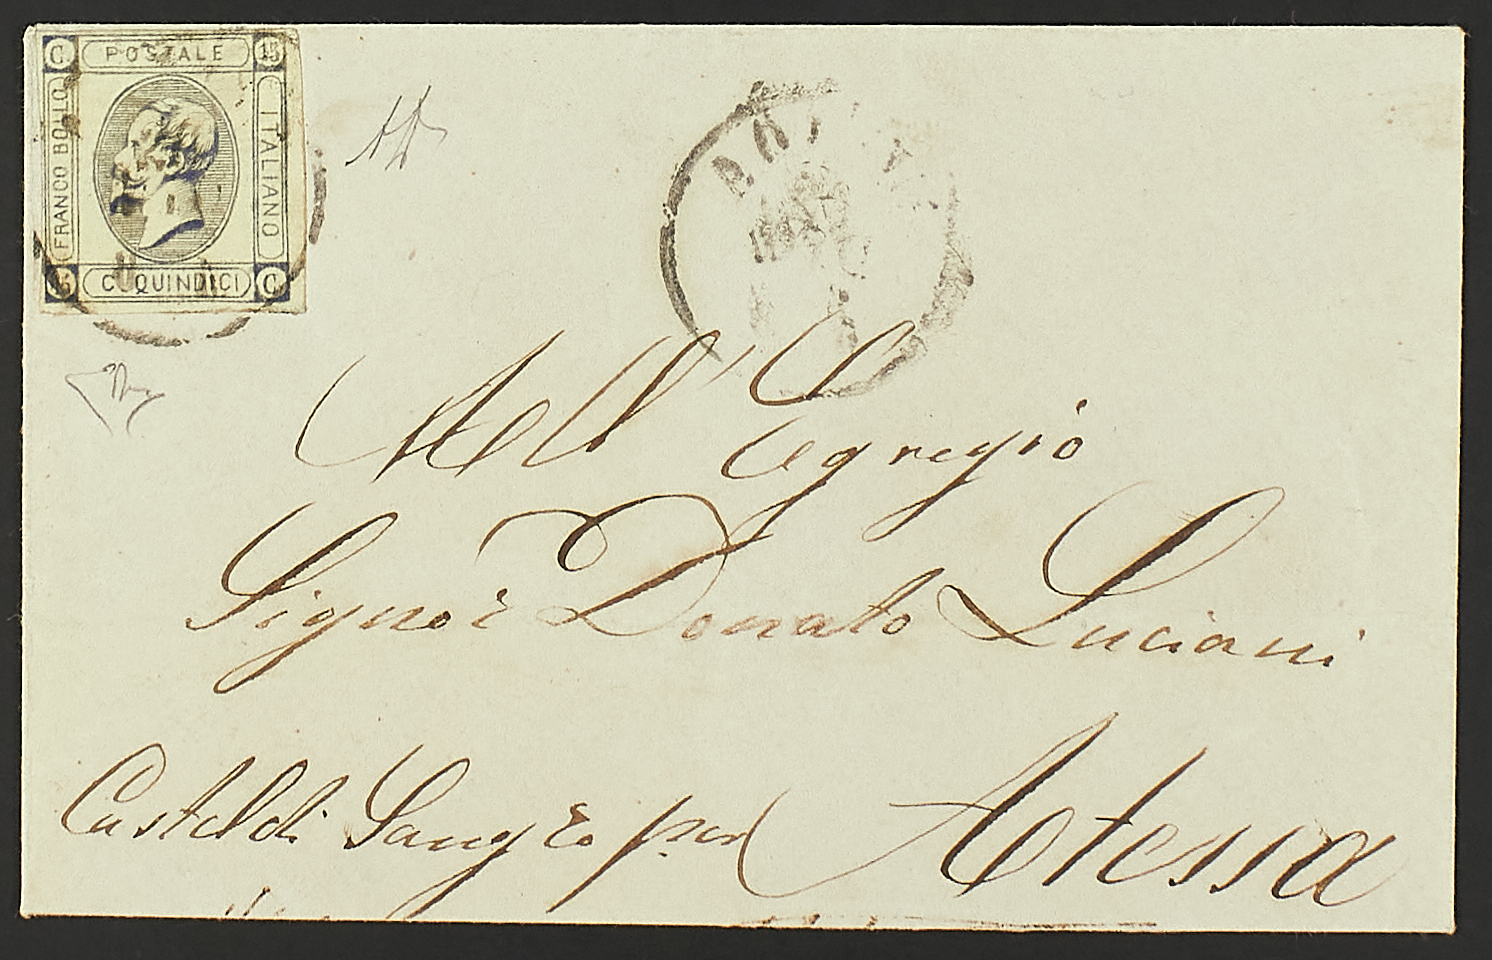 C. POSTALE 15
FRANCO BOLLO
ITALIANO
15 C. QUINDICI C.
All' Egregio
Signor Donato Luciani
Castel di Sangro per Atessa